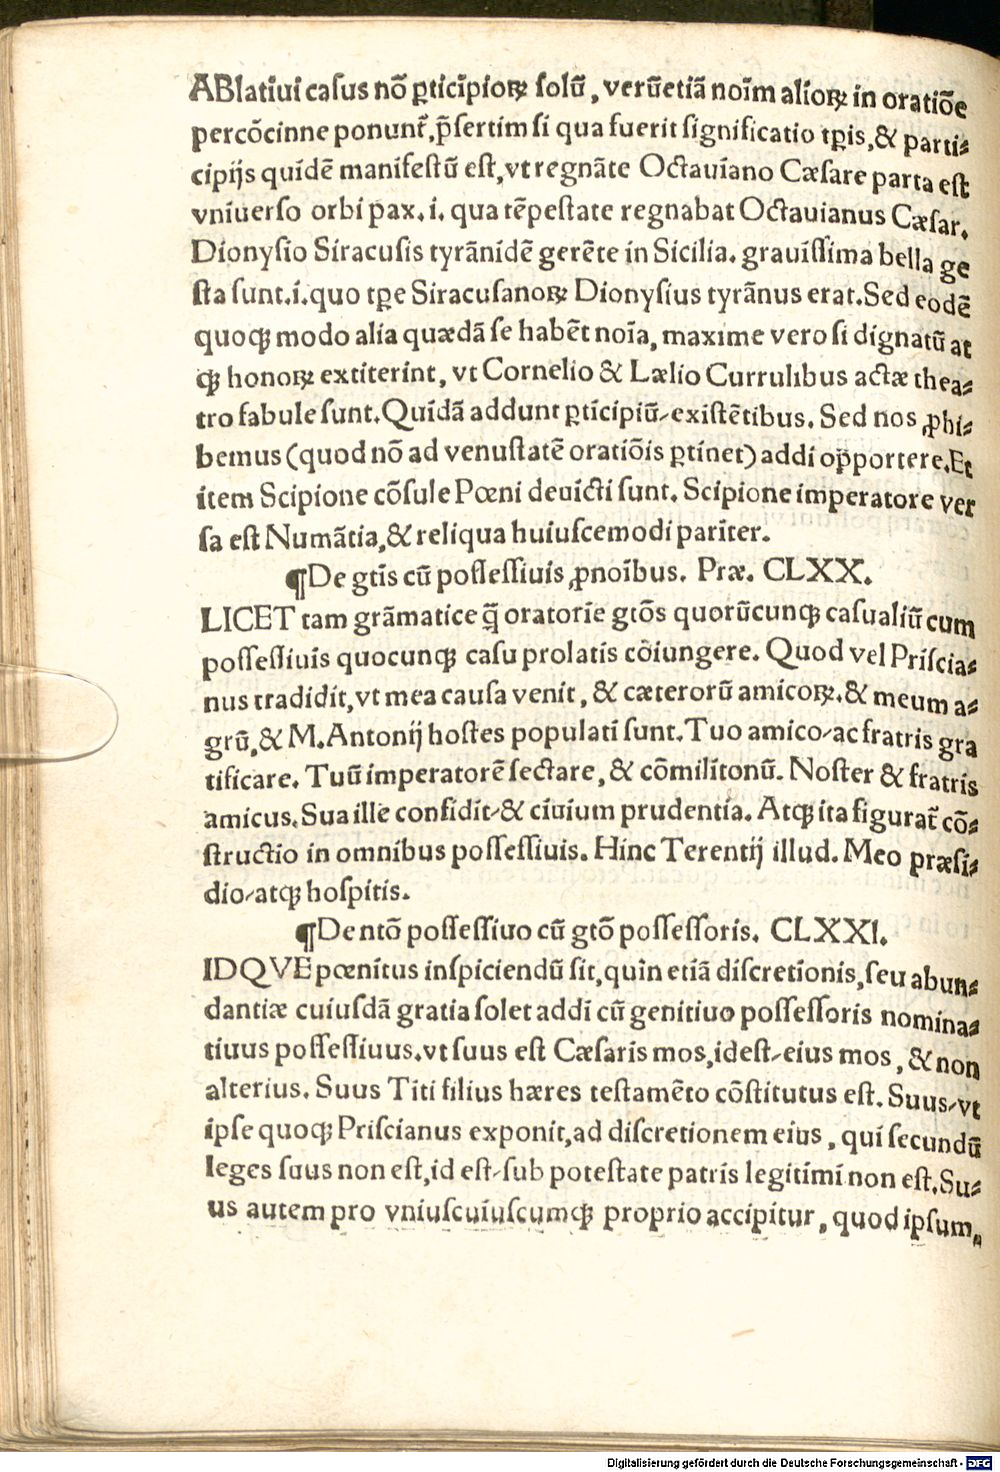 ABlatiui caſus nõ ꝑticĩpioꝝ ſolũ, verũetiã noĩm alioꝝ in oratiõe
percõcinne ponunt᷑, p̃ſertim ſi qua fuerit ſignificatio tꝑis, & parti⸗
cipijs quidẽ manifeſtũ eſt, vt regnãte Octauiano Cæſare parta eſt
vniuerſo orbi pax. i. qua tẽpeſtate regnabat Octauianus Cæſar.
Dionyſio Siracuſis tyrãnidẽ gerẽte in Sicilia. grauiſſima bella ge
ſta ſunt. i. quo tꝑe Siracuſanoꝝ Dionyſius tyrãnus erat. Sed eodẽ
quoqꝫ modo alia quædã ſe habẽt noĩa, maxime vero ſi dignatũ at
qꝫ honoꝝ extiterint, vt Cornelio & Lælio Currulibus actæ thea⸗
tro fabule ſunt. Quidã addunt ꝑticipiũ⸝ exiſtẽtibus. Sed nos ꝓhi⸗
bemus (quod nõ ad venuſtatẽ oratiõis ꝑtinet) addi op̃portere. Et
item Scipione cõſule Pœni deuicti ſunt. Scipione imperatore ver
ſa eſt Numãtia, & reliqua huiuſcemodi pariter.
¶De gtĩs cũ poſſeſſiuis ꝓnoĩbus. Præ. CLXX.
LICET tam grãmatice q̃ȝ oratorie gtõs quorũcunqꝫ caſualiũ cum
poſſeſſiuis quocunqꝫ caſu prolatis cõiungere. Quod vel Priſcia⸗
nus tradidit, vt mea cauſa venit, & cæterorũ amicoꝝ. & meum a⸗
grũ, & M. Antonij hoſtes populati ſunt. Tuo amico⸝ ac fratris gra
tificare. Tuũ imperatorẽ ſectare, & cõmilitonũ. Noſter & fratris
amicus. Sua ille confidit⸝ & ciuium prudentia. Atqꝫ ita figurat᷑ cõ⸗
ſtructio in omnibus poſſeſſiuis. Hinc Terentij illud. Meo præſi⸗
dio⸝ atqꝫ hoſpitis.
¶De ntõ poſſeſſiuo cũ gtõ poſſeſſoris. CLXXI.
IDQVE pœnitus inſpiciendũ ſit, quin etiã diſcretionis, ſeu abun⸗
dantiæ cuiuſdã gratia ſolet addi cũ genitiuo poſſeſſoris nomina⸗
tiuus poſſeſſiuus. vt ſuus eſt Cæſaris mos, ideſt⸝ eius mos, & non
alterius. Suus Titi filius hæres teſtamẽto cõſtitutus eſt. Suus⸝ vt
ipſe quoqꝫ Priſcianus exponit, ad diſcretionem eius, qui ſecundũ
leges ſuus non eſt, id eſt⸝ ſub poteſtate patris legitimi non eſt. Su⸗
us autem pro vniuſcuiuſcumqꝫ proprio accipitur, quod ipſum,
Digitalisierung gefördert durch die Deutsche Forschungsgemeinschaft - DFG